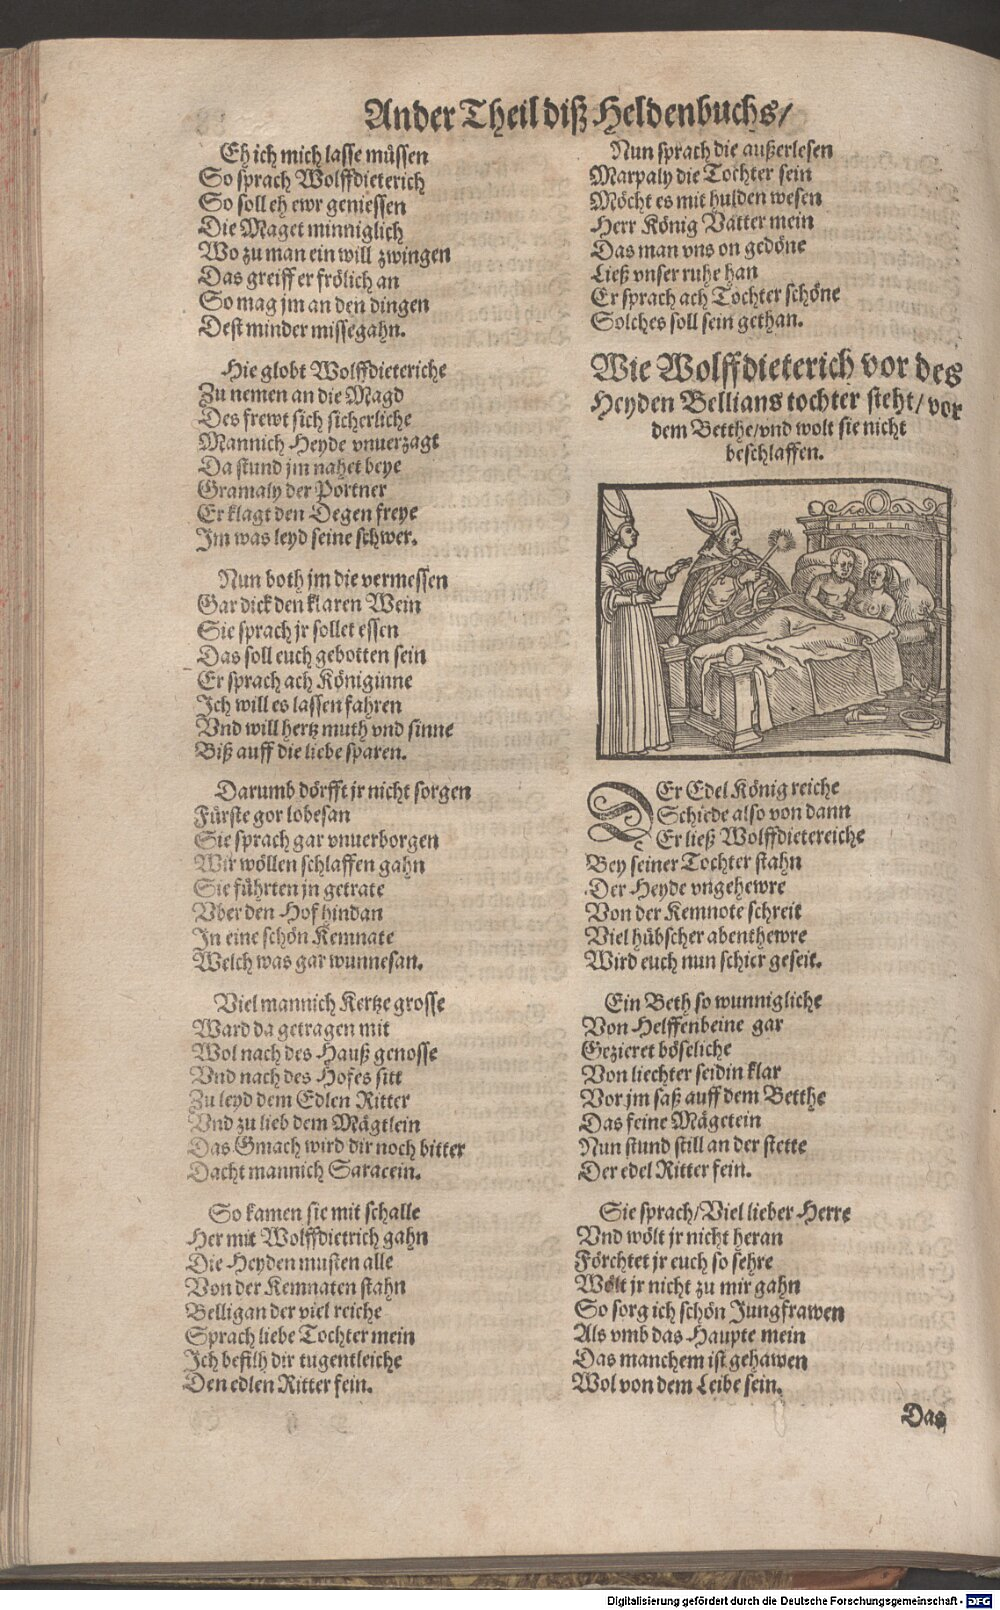 Ander Theil diß Heldenbuchs/
Eh ich mich lasse müssen
So sprach Wolffdieterich
So soll eh ewr geniessen
Die Maget minniglich
Wo zu man ein will zwingen
Das greiff er frölich an
So mag jm an den dingen
Dest minder missegahn.
Hie globt Wolffdieteriche
Zu nemen an die Magd
Des frewt sich sicherliche
Mannich Heyde vnuerzagt
Da stund jm nahet beye
Gramaly der Portner
Er klagt den Degen freye
Im was leyd seine schwer.
Nun both jm die vermessen
Gar dick den klaren Wein
Sie sprach jr sollet essen
Das soll euch gebotten sein
Er sprach ach Königinne
Ich will es lassen fahren
Vnd will hertz muth vnd sinne
Biß auff die liebe sparen.
Darumb dörfft jr nicht sorgen
Fürste gor lobesan
Sie sprach gar vnuerborgen
Wir wöllen schlaffen gahn
Sie führten jn getrate
Vber den Hof hindan
In eine schön Kemnate
Welch was gar wunnesan.
Viel mannich Kertze grosse
Ward da getragen mit
Wol nach des Hauß genosse
Vnd nach des Hofes sitt
Zu leyd dem Edlen Ritter
Vnd zu lieb dem Mägtlein
Das Gmach wird dir noch bitter
Dacht mannich Saracein.
So kamen sie mit schalle
Her mit Wolffdietrich gahn
Die Heyden musten alle
Von der Kemnaten stahn
Belligan der viel reiche
Sprach liebe Tochter mein
Ich befilh dir tugentleiche
Den edlen Ritter fein.
Nun sprach die außerlesen
Marpaly die Tochter sein
Möcht es mit hulden wesen
Herr König Vatter mein
Das man vns on gedöne
Ließ vnser ruhe han
Er sprach ach Tochter schöne
Solches soll sein gethan.
Wie Wolffdieterich vor des
Heyden Bellians tochter steht/ vor
dem Betthe/vnd wolt sie nicht
beschlaffen.
DEr Edel König reiche
Schiede also von dann
Er ließ Wolffdietereiche
Bey seiner Tochter stahn
Der Heyde vngehewre
Von der Kemnote schreit
Viel hübscher abenthewre
Wird euch nun schier geseit.
Ein Beth so wunnigliche
Von Helffenbeine gar
Gezieret böseliche
Von liechter seidin klar
Vor jm saß auff dem Betthe
Das feine Mägetein
Nun stund still an der stette
Der edel Ritter fein.
Sie sprach/Viel lieber Herre
Vnd wölt jr nicht heran
Förchtet jr euch so sehre
Wölt jr nicht zu mir gahn
So sorg ich schön Jungfrawen
Als vmb das Haupte mein
Das manchem ist gehawen
Wol von dem Leibe sein.
Das
Digitalisierung gefördert durch die Deutsche Forschungsgemeinschaft - DFG